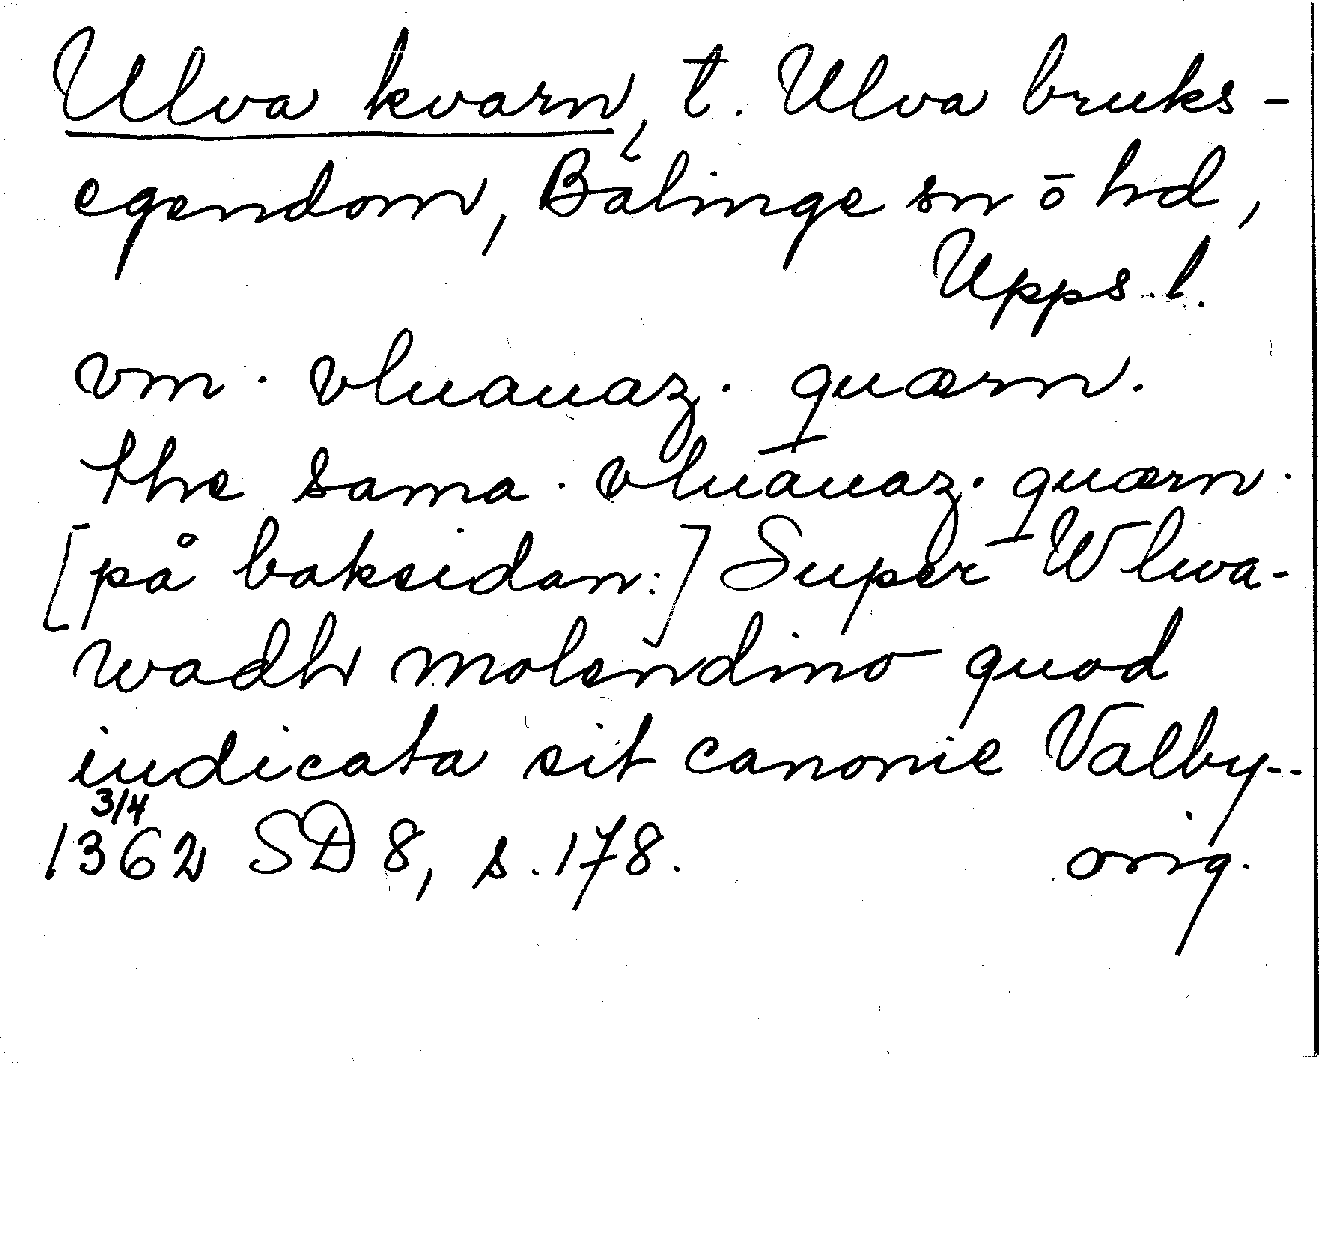 Ulva kvarn, t. Ulva bruks-
egendom, Bälinge sn o hd,
Upps. l.
vm · vluauaz · quærn.
the sama · vluauaz · quærn ·
[på baksidan:] Super Wlwa-
wadh molendino quod
iudicata sit canonie Valby..
1362 3/4 SD 8, s. 178. orig.